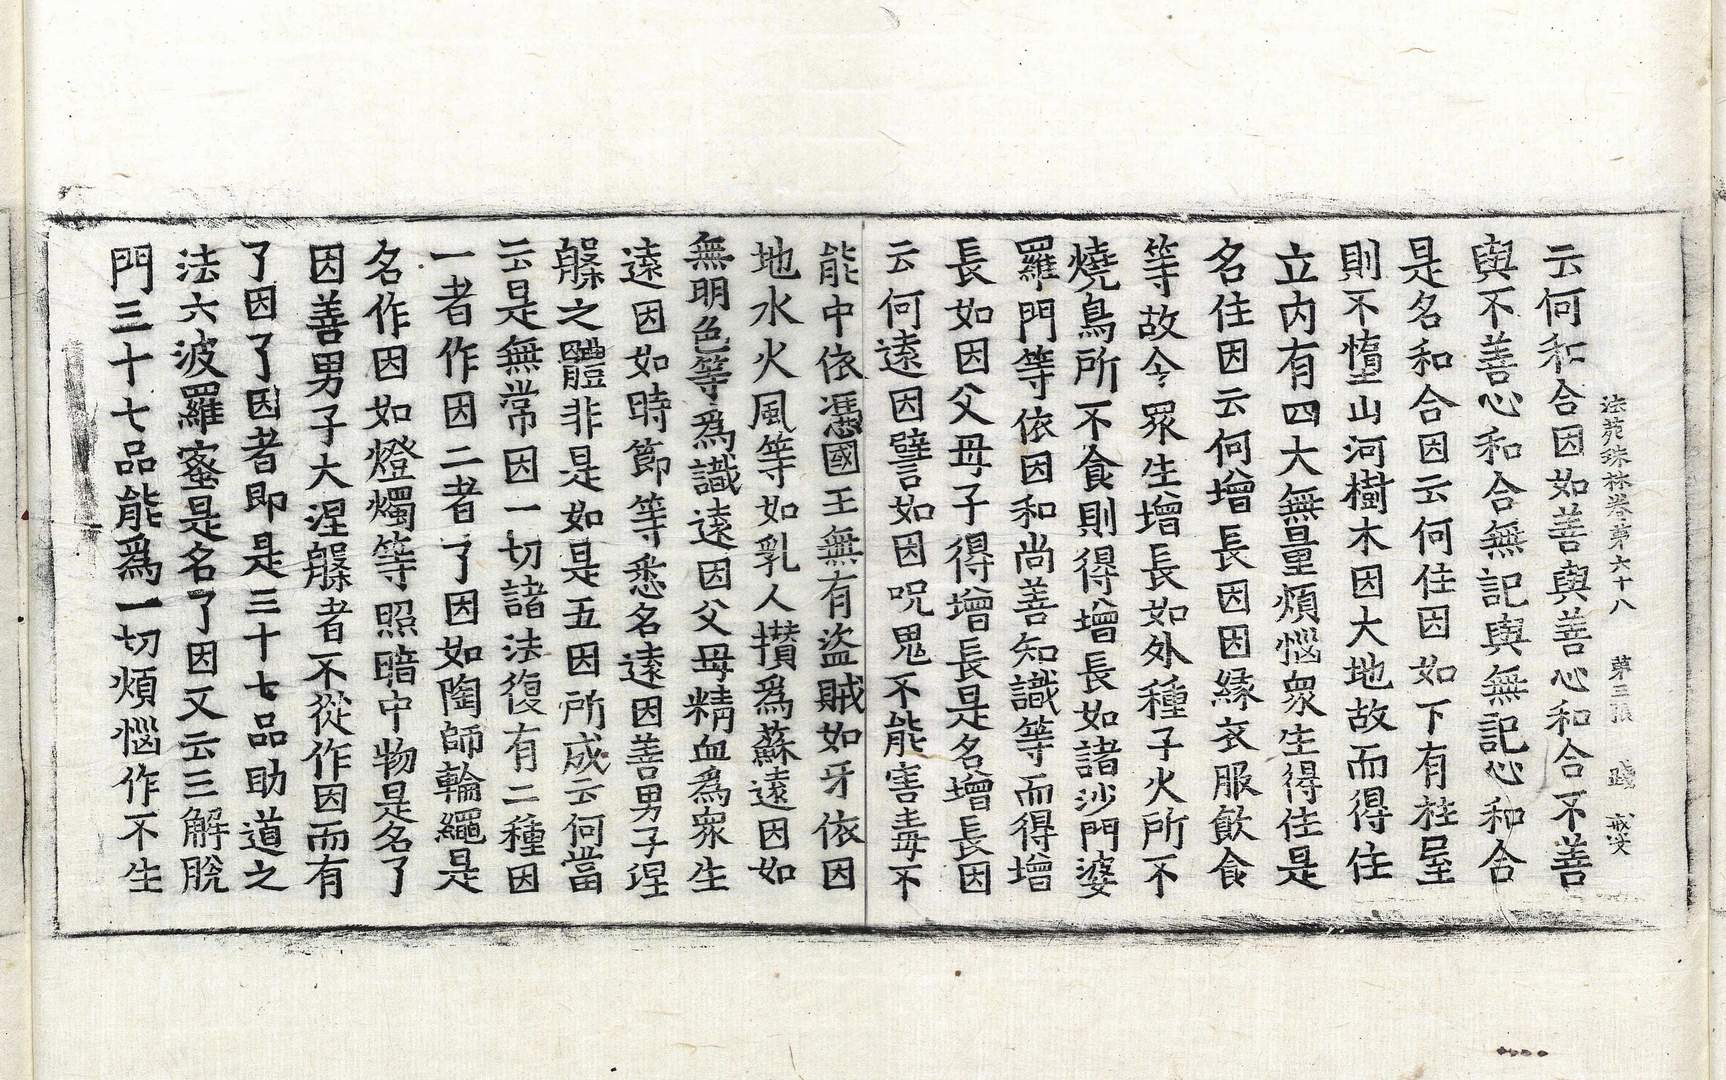 法苑珠林卷第六十八 第三張 踐
云何和合因如善與善心和合不善
與不善心和合無記與無記心和合
是名和合因云何住因如下有柱屋
則不墮山河樹木因大地故而得住
立內有四大無量煩惱眾生得住是
名住因云何增長因因緣衣服飲食
等故令眾生增長如外種子火所不
燒鳥所不食則得增長如諸沙門婆
羅門等依因和尚善知識等而得增
長如因父母子得增長是名增長因
云何遠因譬如因呪鬼不能害毒不
能中依憑國王無有盜賊如牙依因
地水火風等如乳人攢爲蘇遠因如
無明色等爲識遠因父母精血爲眾生
遠因如時節等悉名遠因善男子涅
槃之體非是如是五因所成云何當
云是無常因一切諸法復有二種因
一者作因二者了因如陶師輪繩是
名作因如燈燭等照暗中物是名了
因善男子大涅槃者不從作因而有
了因了因者即是三十七品助道之
法六波羅蜜是名了因又云三解脫
門三十七品能爲一切煩惱作不生